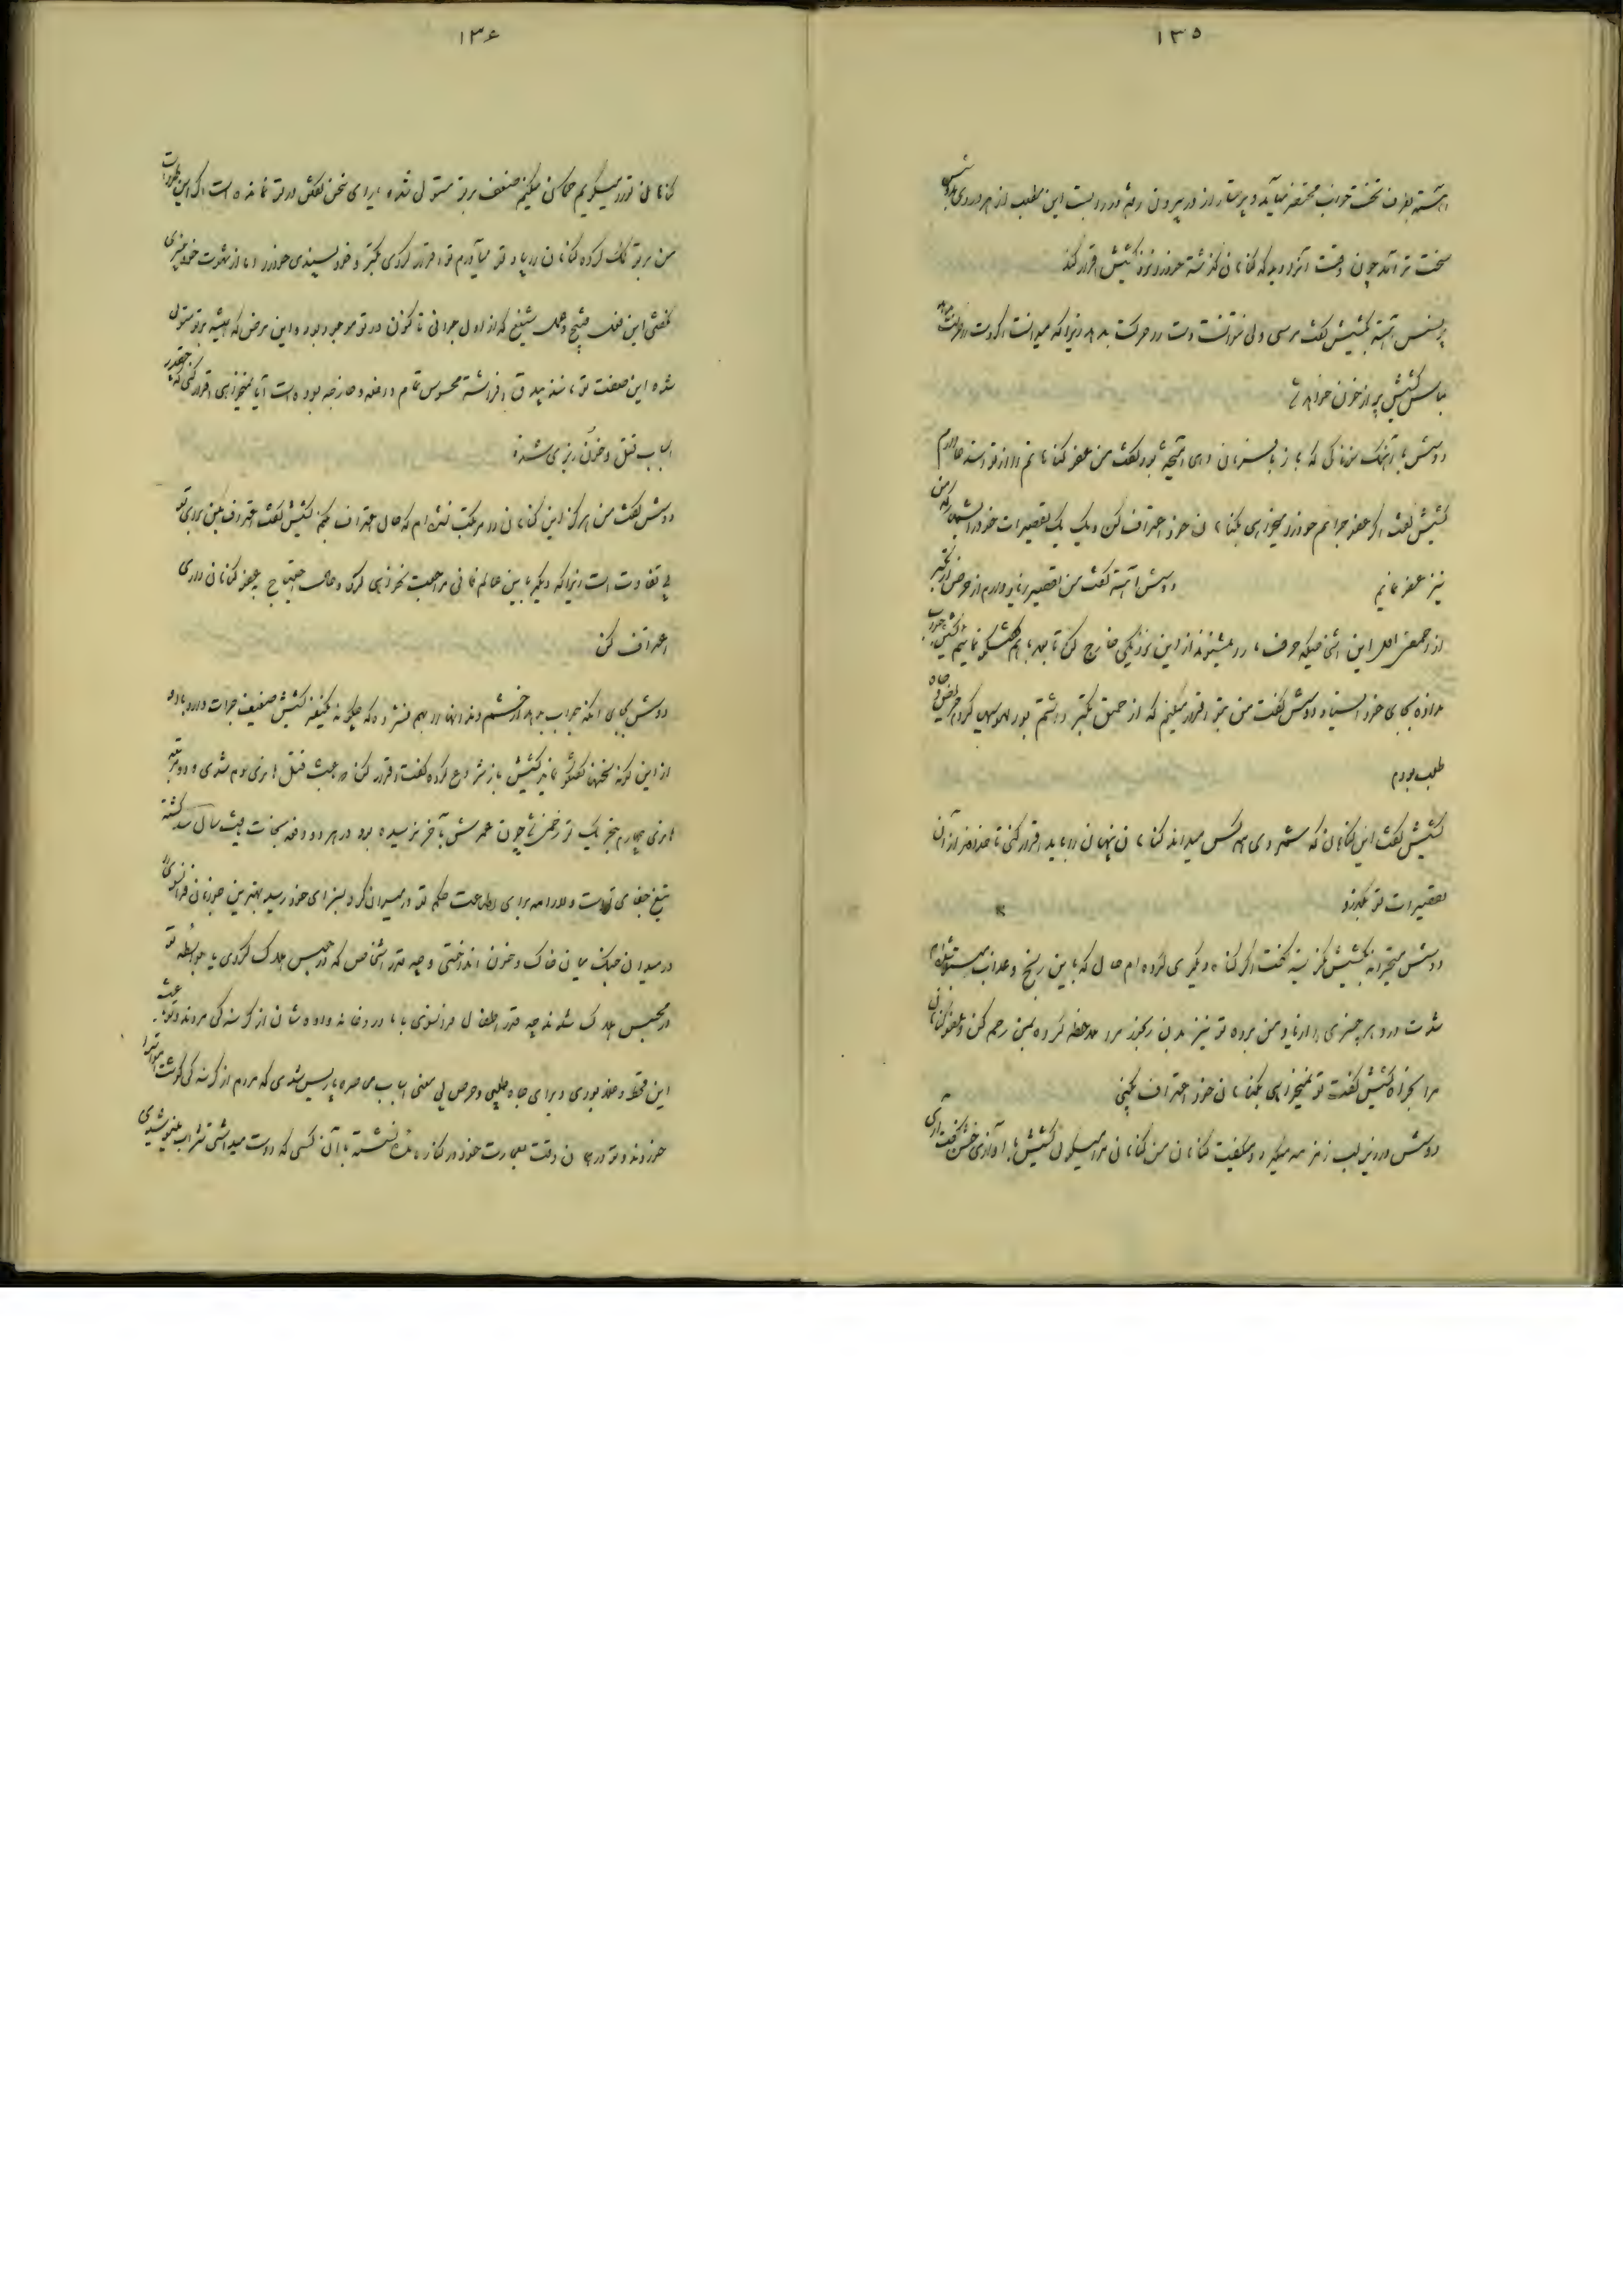 ۱۳۵
آهسته بطرف تختخواب محتضر میآید و پرستار از در بیرون رفته در را بست این مطلب از هر دردی بدوشس
سخت تر آمد چون وقت آنرا دید که گناهان گذشته خود را نزد کشیش اقرار کند
پرنسس آهسته بکشیش گفت مرسی ولی نتوانست دست را حرکت بدهد زیرا که میدانست اگر دست را حرکت بدهد
لباس کشیش پر از خون خواهد شد
دوشس با آهنگ حزناکی که با زبان دردی آمیخته بود گفت من عفو گناهانم را از تو استدعا دارم
کشیش گفت اگر عفو جرائم خود را میخواهی بگناهان خود اعتراف کن و یک یک تقصیرات خود را بشمار که من
نیز عفو نمایم دوشس آهسته گفت من تقصیر زیاد دارم از حرص از تکبر
از طمع اهل این اشخاصیکه حرف ما را میشنوند از این نزدیکی خارج کن تا بعد با هم گفتگو نمائیم کشیش جواب
نداده بجای خود ایستاد دوشس گفت من بتو اقرار میکنم که از خلق تکبر داشتم بوالهوسی کردم حریص و جاه
طلب بودم
کشیش گفت این گناهان که شمردی همه کس میداند گناهان پنهان را باید اقرار کنی تا خداوند از آن
تقصیرات تو بگذرد
دوشس متحیرانه بکشیش نگریسته گفت اگر گناه دیگری کرده ام حال که باین رنج و عذاب مبتلا شده ام
شدت درد هر چیزی را از یاد من برده تو نیز بدن رنجور مرا ملاحظه کرده بمن رحم کن و عفو گناهان
مرا بخواه کشیش گفت تو نمیخواهی بگناهان خود اعتراف بکنی
دوشس در زیر لب زمزمه میکرد و میگفت گناهان من گناهانی مرا میگوئی کشیش با آواز خشن گفت آری
۱۳۶
گناهان تو را میگویم گمان میکنم ضعف بر تو مستولی شده یارای سخن گفتن در تو نمانده است اکنون
من بر تو کمک کرده گناهان را بیاد تو میآورم تو اقرار کردی تکبر و خودپسندی خود را اما از شهوت خونریزی
نگفتی این فعل قبیح و عمل شنیع که از اول جوانی تا کنون در تو موجود بوده این مرض که همیشه بر تو مستولی
شده این صفت تو مانند بیدق افراشته محسوس تمام داخله و خارجه بوده است آیا نمیخواهی اقرار کنی که چقدر
اسباب قتل و خون ریزی شده
دوشس گفت من هرگز این گناهان را مرتکب نشده ام که حال اعتراف بکنم کشیش گفت اعتراف بکن برای تو
بی تفاوت است زیرا که دیگر باین عالم فانی مراجعت نخواهی کرد و حالت احتیاج بعفو گناهان داری
اعتراف کن
دوشس بجای آنکه جواب بدهد از خشم دندانها را بهم فشرده که چگونه یکنفر کشیش ضعیف جرات دارد با او
از این گونه سخنها گفتگو نماید کشیش باز شروع کرده گفت اقرار کن که باعث قتل هانری سوم شدی و دو مرتبه
هانری چهارم بتحریک تو زخمی شد چون عمرش بآخر نرسیده بود در هر دو دفعه نجات یافت سال گذشته
تیغ جفای تو است
در میدان جنگ میان خاک و خون انداختی و چه قدر اشخاص که در حبس هلاک کردی یا بواسطه تو
در محبس هلاک شدند چه قدر اطفال فرانسوی با مادر و خانه واده شان از گرسنه گی مردند و تو باعث
این قحط و غلا بودی و برای جاه طلبی و حرص بی معنی اسباب محاصره پاریس شدی که مردم از گرسنه گی گوشت مردار را
خوردند و تو در همان وقت بعمارت خود در کناره تخت نشسته با آن کسی که دوست میداشتی شراب مینوشیدی